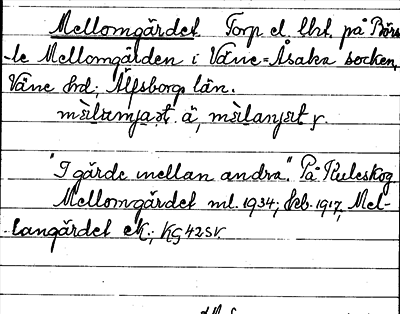 Mellomgärdet. Torp el. lht. på Börs-
-le Mellomgården i Väne-Åsaka socken,
Väne hd; Älfsborgs län.
"I gärde mellan andra". På Ruleskog
Mellomgärdet ml. 1934; hb. 1917, Mel-
-langärdet ek.; KG 42SV